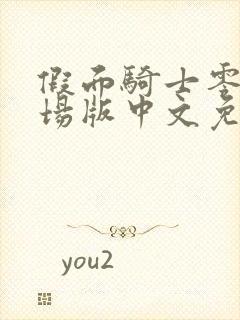 假面騎士零
場版中文免
you2